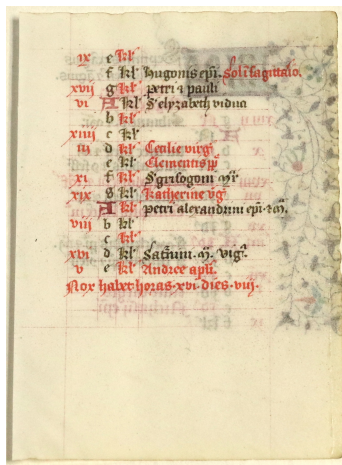 ix e kl'
f kl' hugonis epi. Sol i sagittario.
xvij g kl' petri ⁊ pauli
vi A kl' S' elyzabeth vidua
b kl'
xiiij c kl'
iij d kl' Cecilie virg'
e kl' Clementis pp
xi f kl' S' grisogoni m'r
xix g kl' Katherine v'g
A kl' petri alexandrini epi. ⁊ m.
viij b kl'
c kl'
xvi d kl' Saturni. m. vig'.
v e kl' Andree apli.
Nox habet horas. xvi. dies. viij.